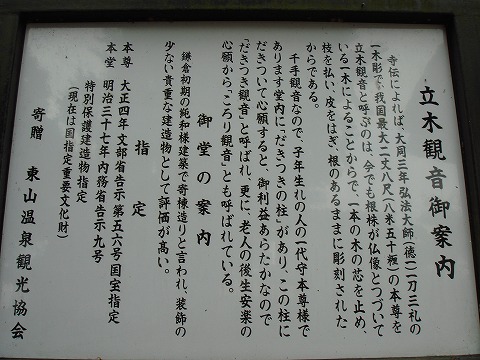 立木観音御案内
寺伝によれば、大同三年弘法大師(徳一)一刀三礼の
一木彫で我国最大二丈八尺(八米五十糎)の本尊を
立木観音と呼ぶのは、今でも根株が仏像とつづいて
いる一木によることからで、一本の木の芯を止め、
枝を払い、皮をはぎ、根のあるままに彫刻された
からである。
千手観音なので、子年生れの人の一代守本尊様で
あります堂内に「だきつきの柱」があり、この柱に
だきついて心願すると、御利益あらたかなので
「だきつき観音」と呼ばれ、更に、老人の後生安楽の
心願から、「ころり観音」とも呼ばれている。
御堂の案内
鎌倉初期の純和様建築で寄棟造りと言われ、装飾の
少ない貴重な建造物として評価が高い。
指定
本尊 大正四年文部省告示第五六号国宝指定
本堂 明治三十七年内務省告示九号
特別保護建造物指定
(現在は国指定重要文化財)
寄贈 東山温泉観光協会